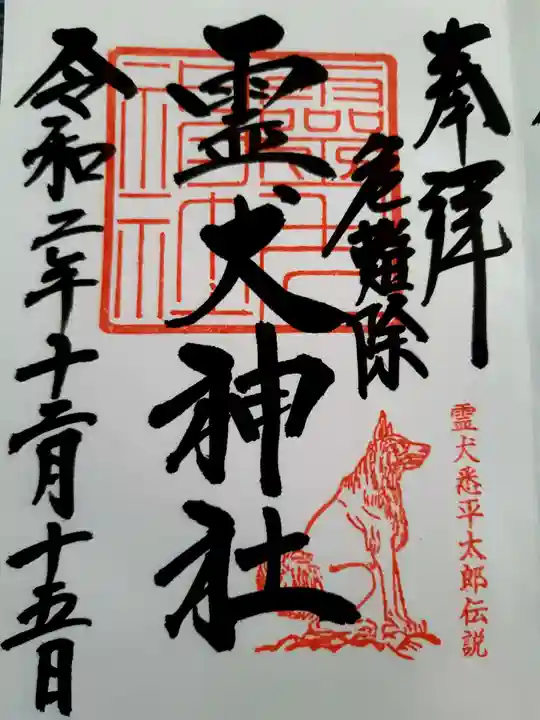 奉拝
危難除
霊犬神社
靈犬
神社
令和二年十二月十五日
霊犬悉平太郎伝説